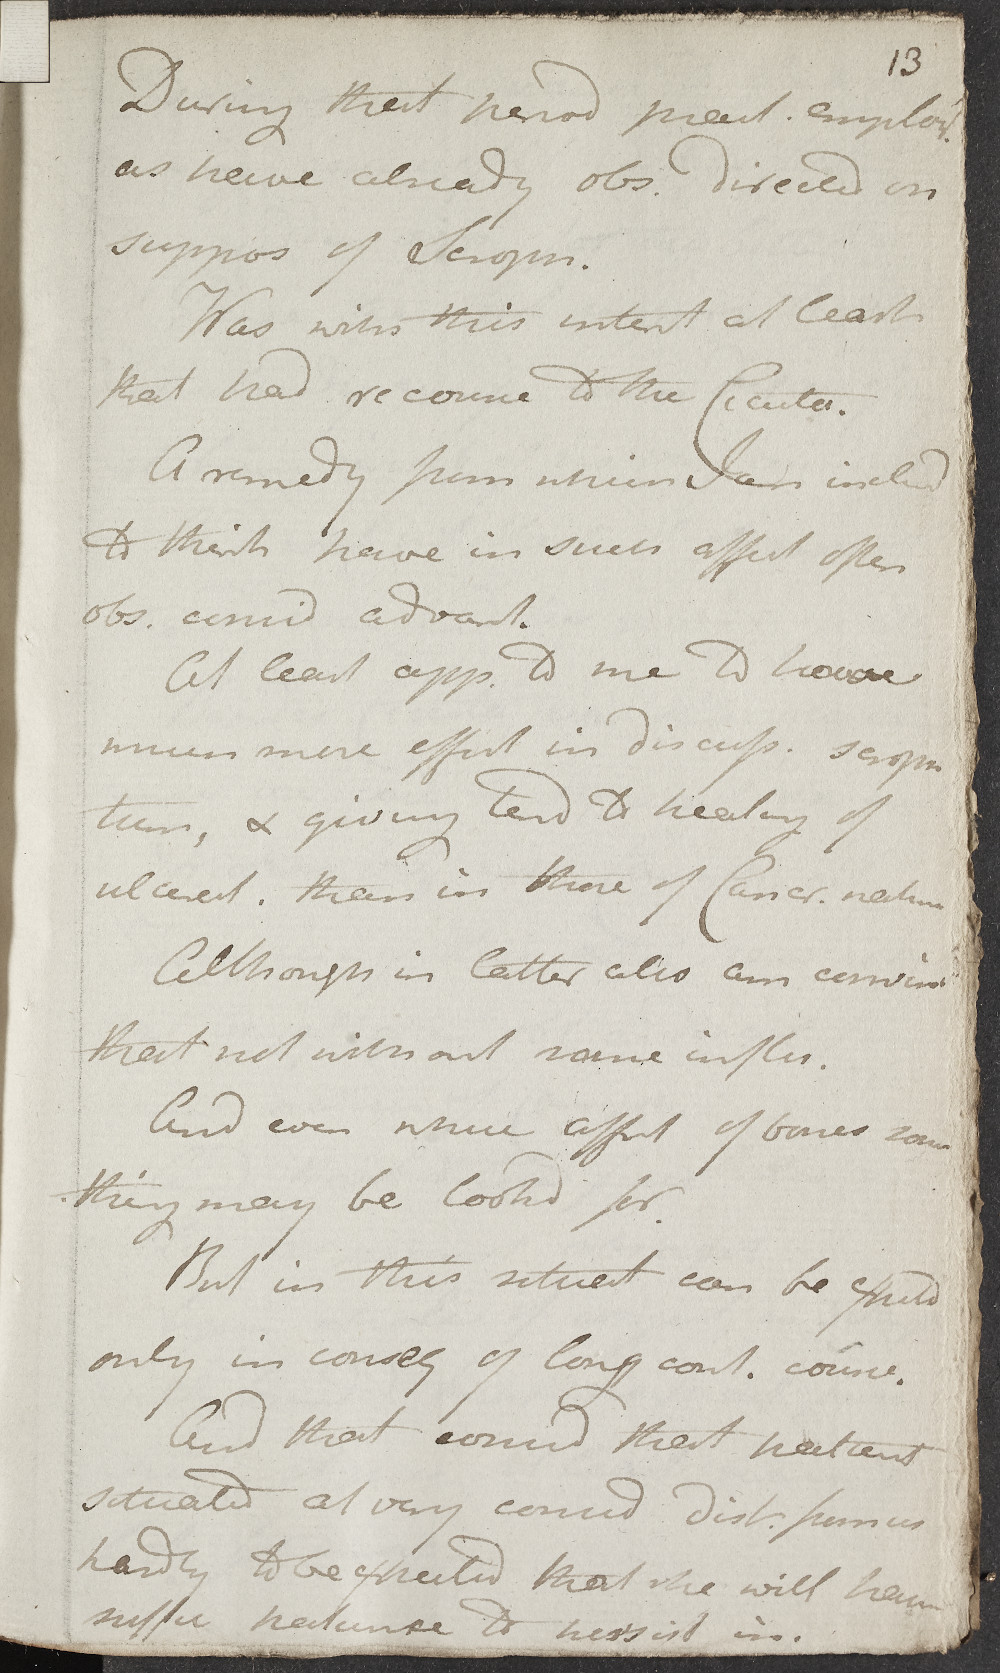 13
During that period pract. employ'd.
as have already obs. directed on
suppos of Scroph.
Was with this intent at least
that had recourse to the Cicuta.
A remedy from which I am inclind
to think have in such affect often
obs. consid advant.
At least app. to me to have
much more effect in discuss. scroph
tum, & giving tend to healing of
ulcerat. than in those of Cancr. nature
Although in latter also am convinc
that not without some influ.
And even where affect of bones some
thing may be look'd for.
But in this situat can be expectd
only in conseq of long cont. course.
And that consid that patient
situated at very consid dist. from us
hardly to be expected that she will have
suffic patience to persist in.